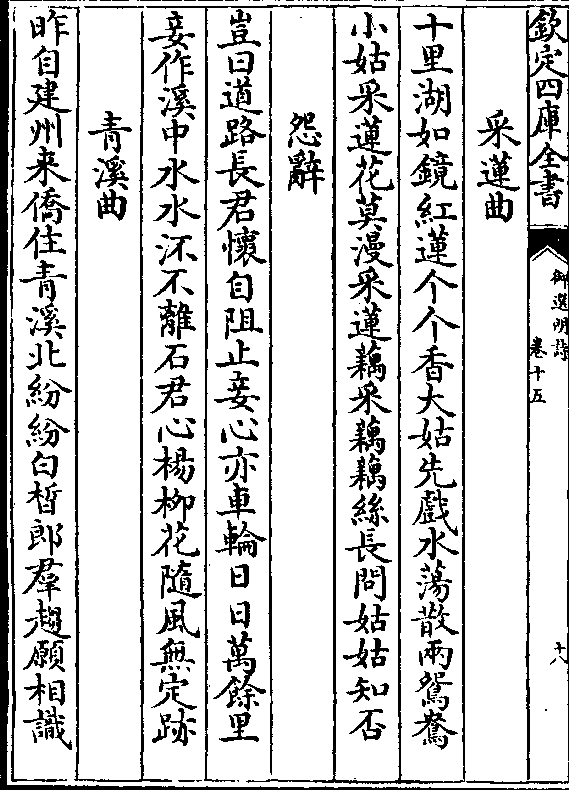 欽定四庫全書
御選明詩
卷十五
十八
采蓮曲
十里湖如鏡紅蓮个个香大姑先戲水蕩散兩鴛鴦
小姑采蓮花莫漫采蓮藕采藕藕絲長問姑姑知否
怨辭
豈曰道路長君懷自阻止妾心亦車輪日日萬餘里
妾作溪中水水流不離石君心楊柳花隨風無定跡
青溪曲
昨自建州来僑住青溪北紛紛白皙郎羣趨願相識